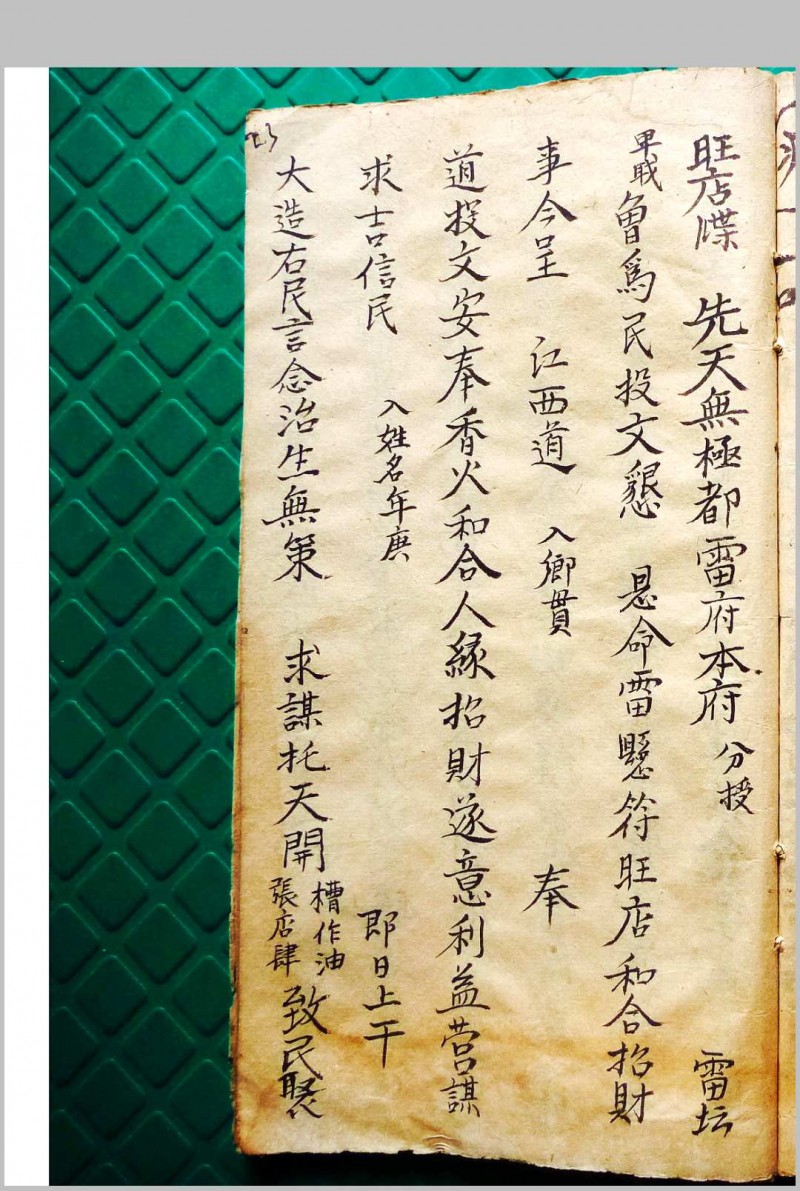 旺店牒 先天無極都雷府本府 分授 雷坛
卑職 曾爲民投文懇 恳命雷懸符旺店和合招財
事今呈 江西道 入鄉貫 奉
道投文安奉香火和合人緣招財遂意利益营謀
求吉信民 入姓名年庚 即日上干
大造右民言念治生無策 求謀托天開 槽作油 張店肆 致民聚
23